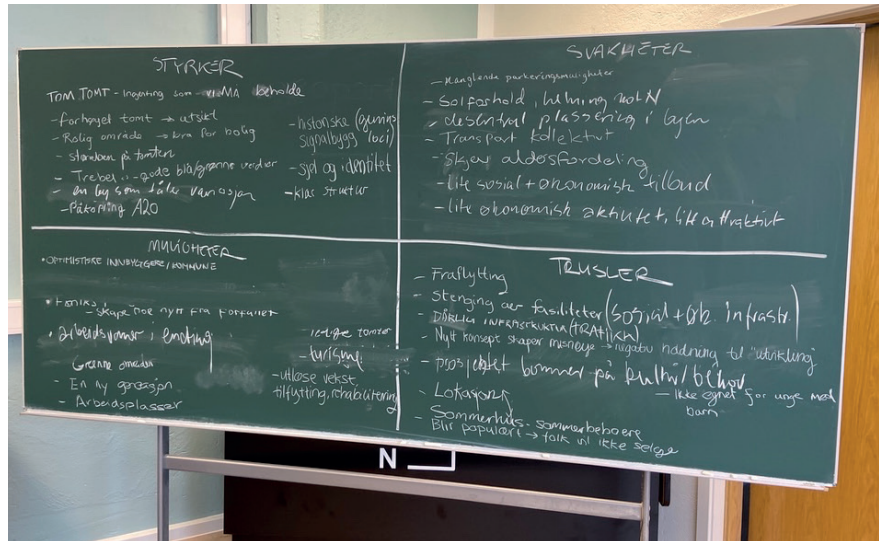 STYRKER
TOM TOMT - Ingenting som VI MÅ beholde
- forhøyet tomt → utsikt
- Rolig område → bra for bolig
- størrelsen på tomten
- Trebel gode blå/grønne verdier
- en by som tåler variasjon
- Påkobling A20
- historiske
signalbygg
- sjel og identitet
- klar struktur
SVAKHETER
- Manglende parkeringsmuligheter
- Solforhold, helning mot N
- desentral plassering i byen
- Transport kollektivt
- skjev aldersfordeling
- lite sosial + økonomisk tilbud
- lite økonomisk aktivitet, lite attraktivt
MULIGHETER
• OPTIMISTISKE INNBYGGERE/KOMMUNE
- skape noe nytt fra forfallet
• arbeidsvaner i endring
Grønne områder
- En ny
- Arbeidsplasser
ledige tomter
- turisme
- utløse vekst
tilflytting, rehabilitering
TRUSLER
- Fraflytting
- Stenging av fasiliteter (sosial + øk. infrastr.)
- DÅRLIG INFRASTRUKTUR (TRAFIKK)
- Nytt konsept skaper misnøye → negativ holdning til "utvikling"
- prosjektet bommer på kultur/behov
- Ikke egnet for unge med
barn
- Lokasjon
- Sommerhus - sommerbeboere
Blir populært → folk vil ikke selge
N